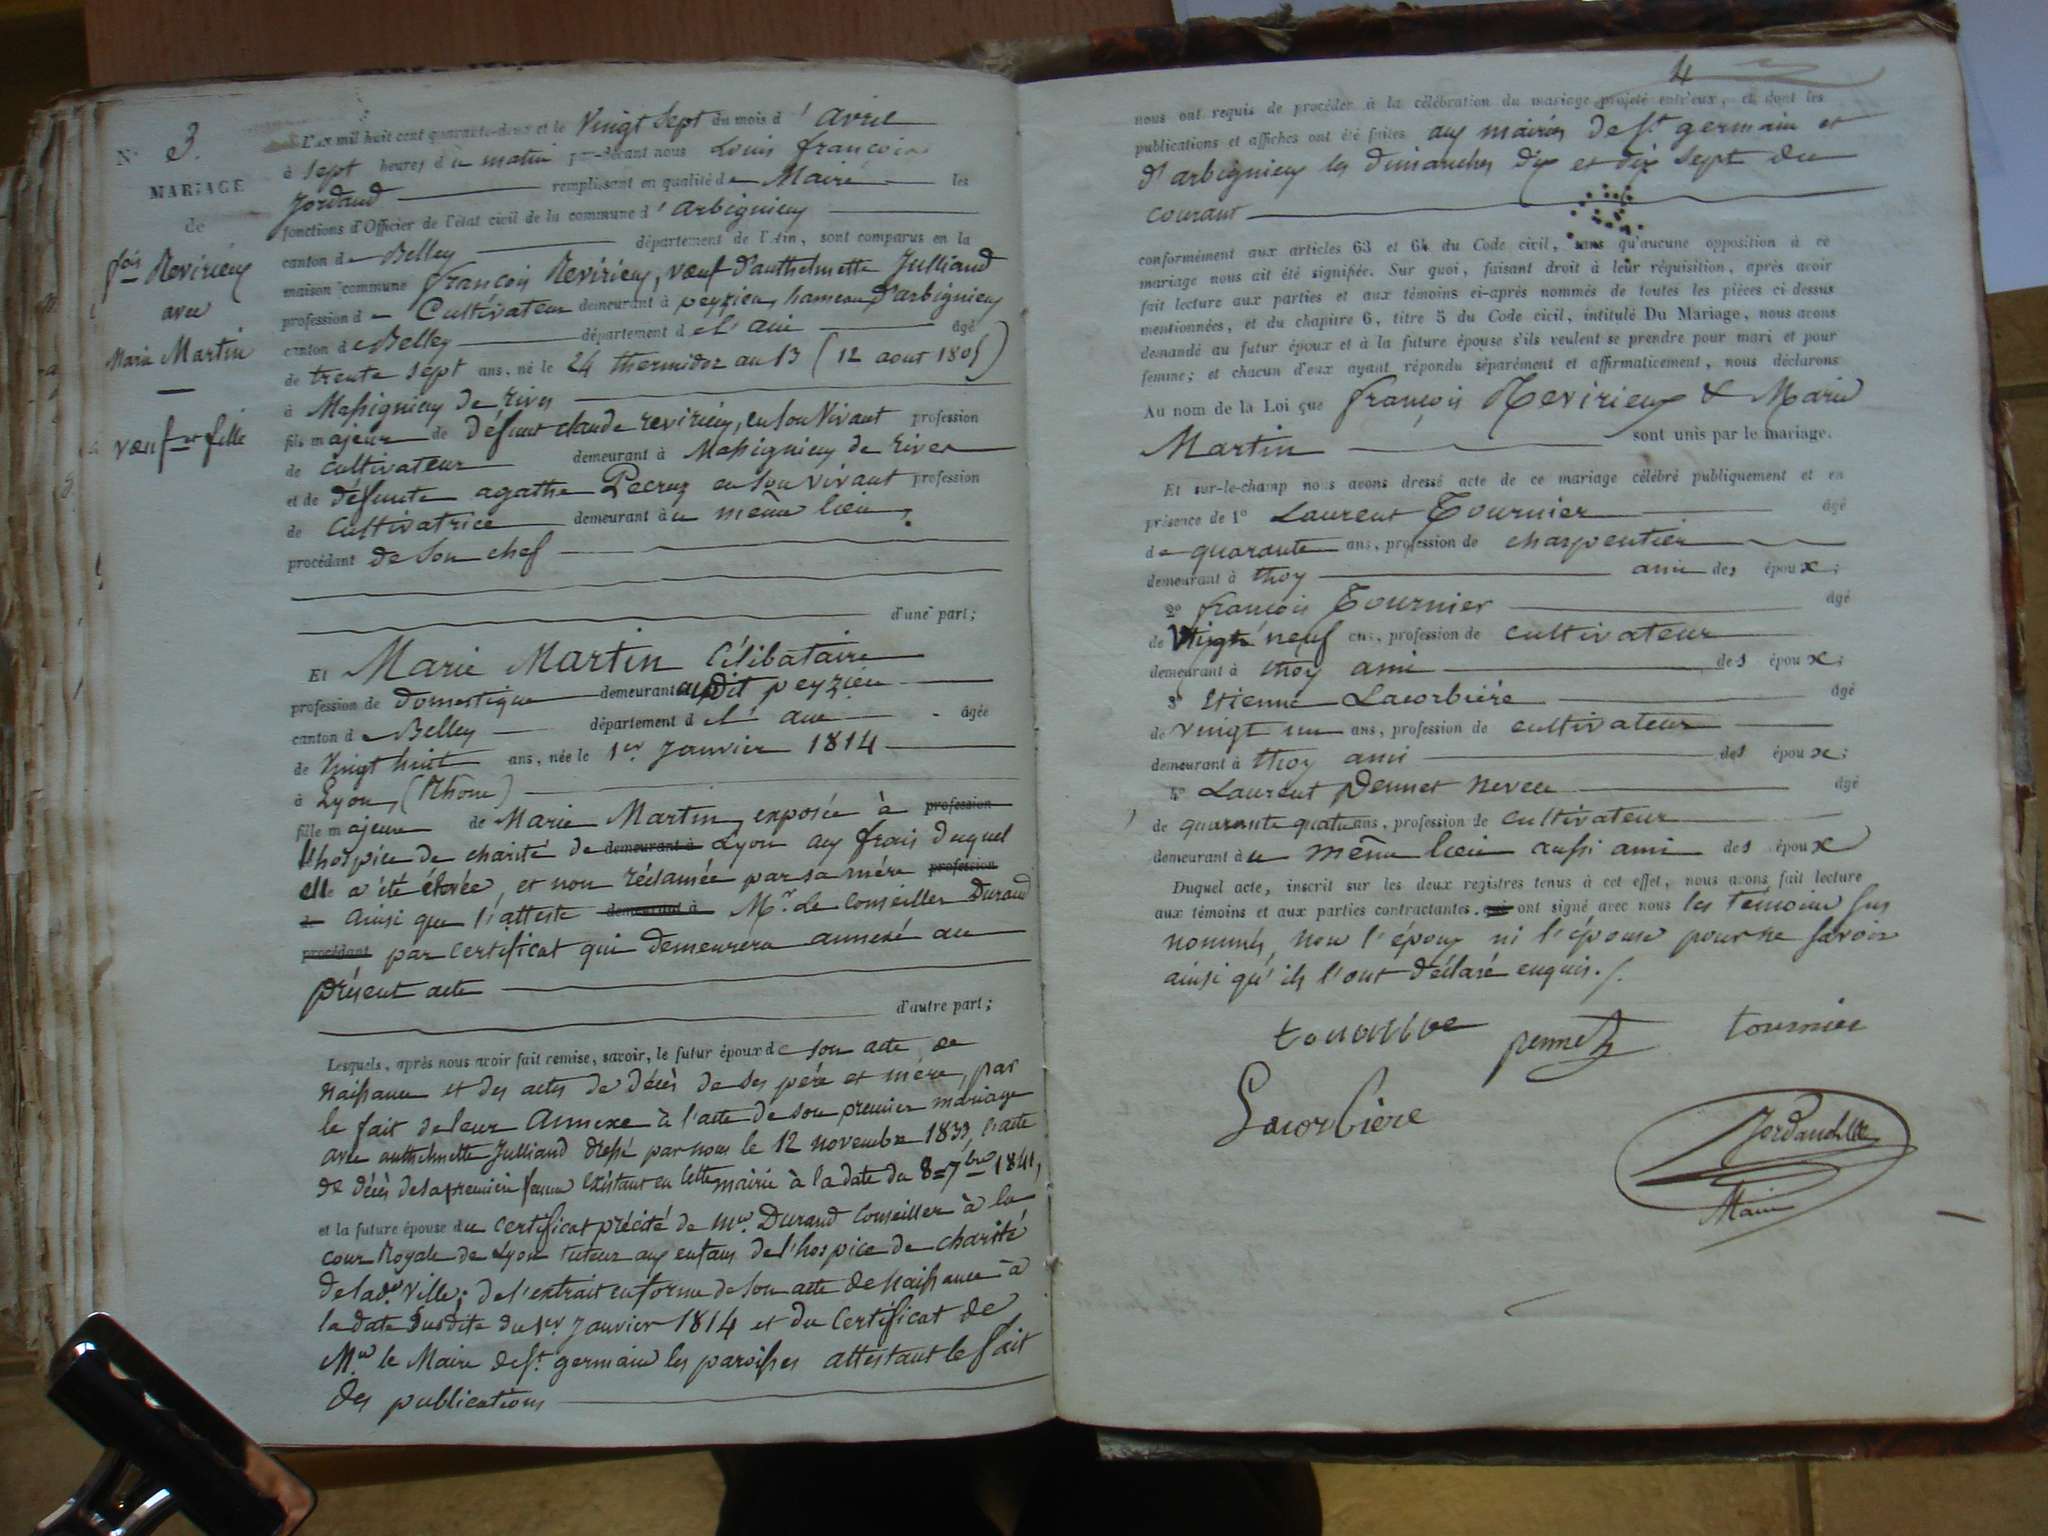 N° 3.
MARIAGE
de
fois Revirieux
avec
Marie Martin
veuf et fille
L'an mil huit cent quarante-deux et le Vingt Sept du mois d'avril
à sept heures du matin par-devant nous Louis françois
Jordand remplissant en qualité de Maire les
fonctions d'Officier de l'état civil de la commune d'arbignieu
canton de Belley département de l'Ain, sont comparus en la
maison commune françois Revirieux, vœuf d'anthelmette Julliand
profession de Cultivateur demeurant à peyzieu, hameau d'arbignieu
canton de Belley département de l'ain âgé
de trente sept ans, né le 24 thermidor an 13 (12 aout 1805)
à Massignieu de rives
fils majeur de défunt claude revirieux, en son Vivant profession
de cultivateur demeurant à Massignieu de rives
et de défunte agathe Pecruz en son vivant profession
de Cultivatrice demeurant au même lieu,
procédant de son chef
d'une part;
Et Marie Martin Célibataire
profession de Domestique demeurant audit peyzieu
canton de Belley département de l'ain âgée
de Vingt huit ans, née le 1er janvier 1814
à Lyon, (Rhône)
fille majeure de Marie Martin, exposée à profession
l'hospice de charité de demeurant à Lyon aux frais duquel
elle a été élevée, et non réclamée par sa mère profession
ainsi que l'atteste demeurant à Mr. le Conseiller Durand
procédant par certificat qui demeurera annexé au
présent acte
d'autre part;
Lesquels, après nous avoir fait remise, savoir, le futur époux de son acte de
naissance et des actes de décès de ses père et mère, par
le fait de leur annexe à l'acte de son premier mariage
avec anthelmette Julliand dressé par nous le 12 novembre 1833, l'acte
de décès de sa première femme existant en cette mairie à la date du 8=7bre 1841,
et la future épouse du certificat précité de Mr. Durand Conseiller à la
cour Royale de Lyon tuteur aux enfans de l'hospice de charité
de lade. ville; de l'extrait en forme de son acte de naissance à
la date susdite du 1er janvier 1814 et du Certificat de
Mr le Maire de St. germain les paroisses attestant le fait
des publications
4
nous ont requis de procéder à la célébration du mariage projeté entr'eux, et dont les
publications et affiches ont été faites aux mairies de St germain et
d'arbignieu les dimanches dix et dix sept du
courant
conformément aux articles 63 et 64 du Code civil, sans qu'aucune opposition à ce
mariage nous ait été signifiée. Sur quoi, faisant droit à leur réquisition, après avoir
fait lecture aux parties et aux témoins ci-après nommés de toutes les pièces ci-dessus
mentionnées, et du chapitre 6, titre 5 du Code civil, intitulé Du Mariage, nous avons
demandé au futur époux et à la future épouse s'ils veulent se prendre pour mari et pour
femme; et chacun d'eux ayant répondu séparément et affirmativement, nous déclarons
Au nom de la Loi que françois Revirieux & Marie
Martin sont unis par le mariage.
Et sur-le-champ nous avons dressé acte de ce mariage célébré publiquement et en
présence de 1° Laurent Tournier âgé
de quarante ans, profession de charpentier
demeurant à thoy ami des époux;
2° françois Tournier âgé
de Vingt neuf ans, profession de cultivateur
demeurant à thoy ami des époux;
3° Etienne Lacorbière âgé
de vingt un ans, profession de cultivateur
demeurant à thoy ami des époux;
4° Laurent Pennet âgé
de quarante quatre ans, profession de cultivateur
demeurant au même lieu aussi ami des époux
Duquel acte, inscrit sur les deux registres tenus à cet effet, nous avons fait lecture
aux témoins et aux parties contractantes, qui ont signé avec nous les témoins sus
nommés, non l'époux ni l'épouse pour ne savoir
ainsi qu'ils l'ont déclaré enquis.
pennet tournier
Lacorbière
Jordand
Maire